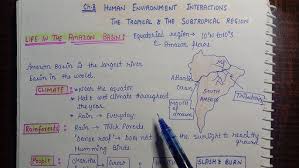 Ch:8 HUMAN ENVIRONMENT INTERACTIONS
THE TROPICAL & THE SUBTROPICAL REGION
LIFE IN THE AMAZON BASIN:
Equatorial region → 10°N to 10°S
Amazon River
Amazon Basin is the largest river
Basin in the world.
Atlantic
Ocean
SOUTH
AMERICA
CLIMATE:
Near the equator
Hot & wet climate throughout
the year.
Rain → Everyday
Mouth
of
Rainforests:
Rain → Thick forests
Dense roof → does not the sunlight to reach the
ground
Humming Birds
People